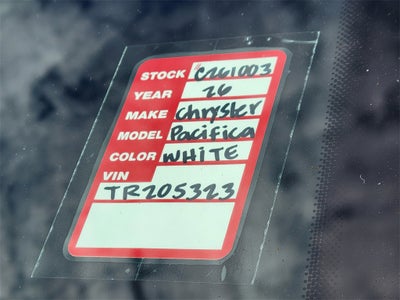 STOCK C261003
YEAR 26
MAKE Chrysler
MODEL Pacifica
COLOR WHITE
VIN
TR205323